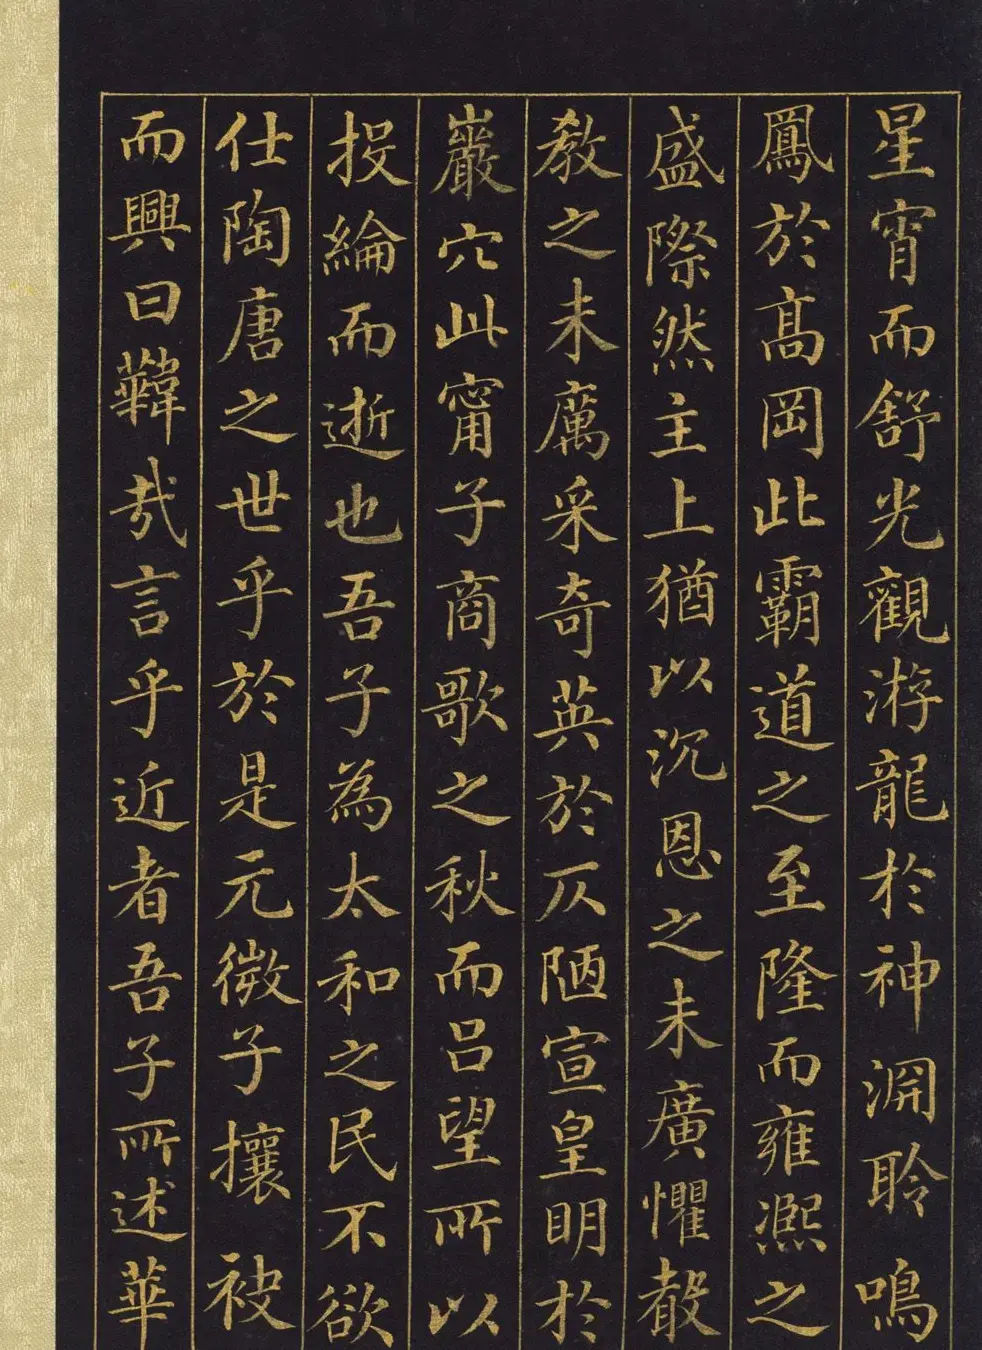 星宵而舒光觀游龍於神淵聆鳴
鳳於髙岡此霸道之至隆而雍熈之
盛際然主上猶以沉恩之未廣懼聲
教之未厲采奇英於仄陋宣皇明於
巖穴此甯子商歌之秋而吕望所以
投綸而逝也吾子為太和之民不欲
仕陶唐之世乎於是元微子攘袂
而興曰韡哉言乎近者吾子所述華